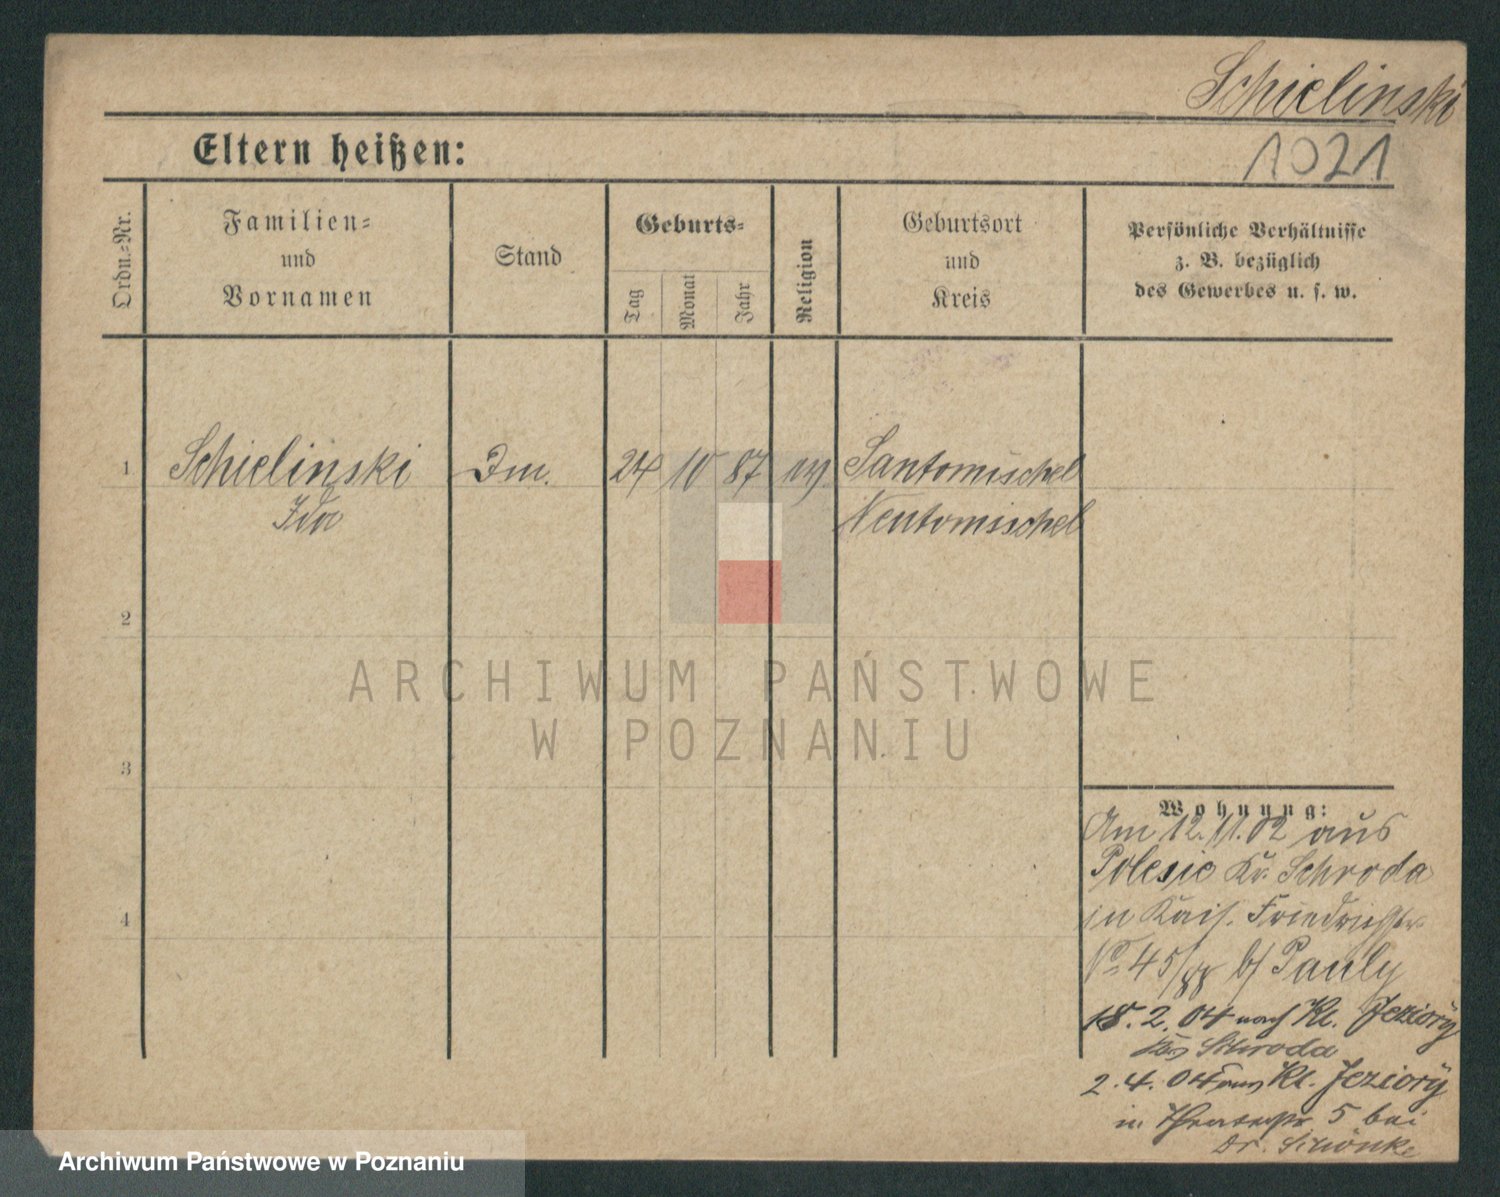 Schielinski
1021
Eltern heißen:
Ordn.-Nr.
Familien-
und
Vornamen
Stand
Geburts-
Tag
Monat
Jahr
Religion
Geburtsort
und
Kreis
Persönliche Verhältnisse
z. B. bezüglich
des Gewerbes u. s. w.
1 Schielinski 24 10 87 Santomischel
Ida Neutomischel
2
3
4
ARCHIWUM PAŃSTWOWE
W POZNANIU
Wohnung:
Am 12.11.02 aus
Polesie Kr. Schroda
in Kais. Friedrichstr.
No. 45/ b/ Pauly
18. 2. 04 nach Kl. Jeziory
Schroda
2. 4. 04 aus Kl. Jeziory
in 5 bei
Dr. Schönke
Archiwum Państwowe w Poznaniu